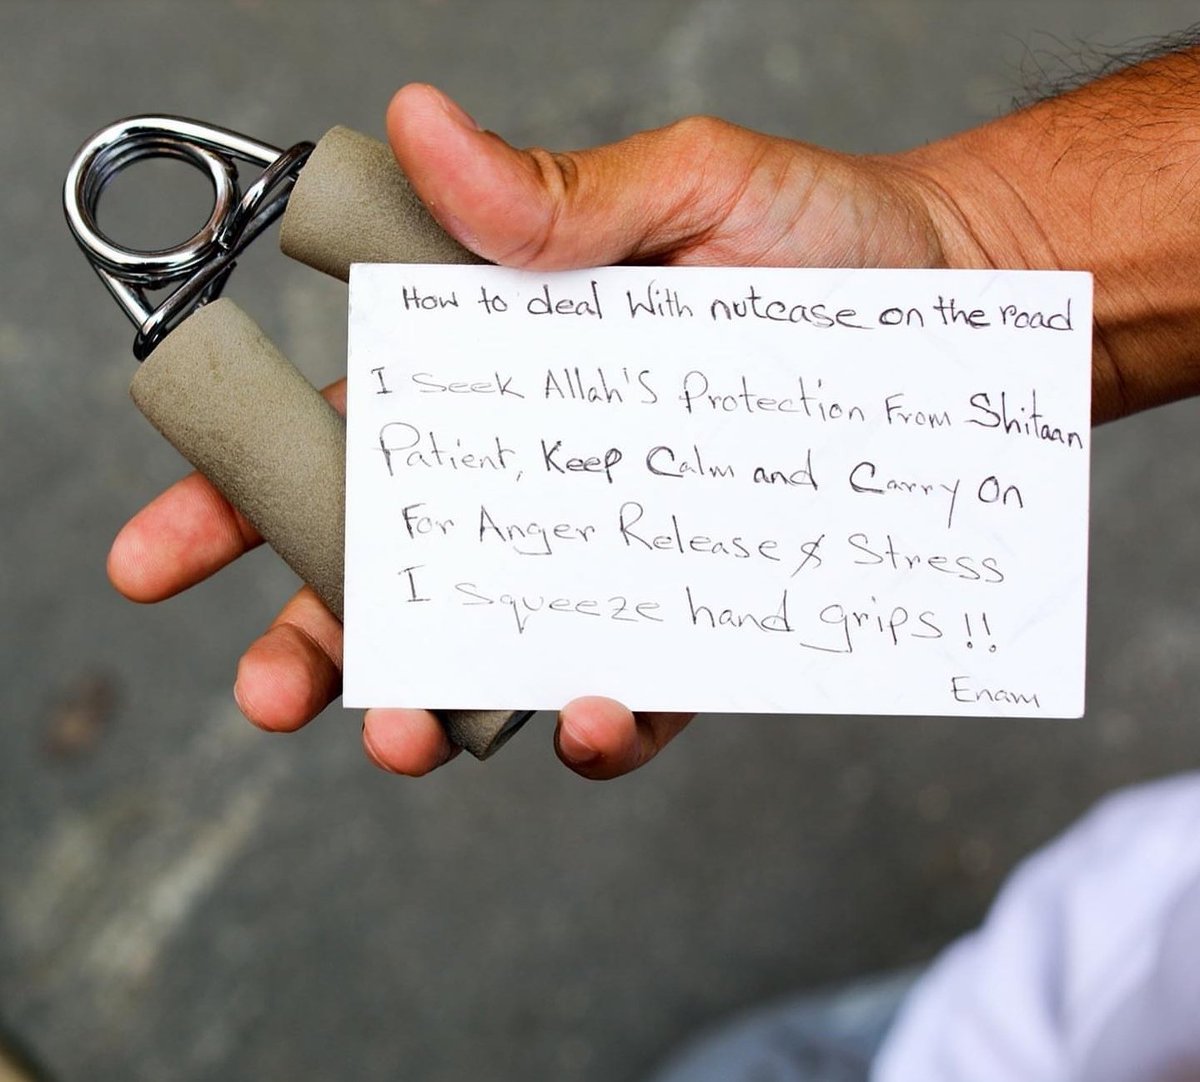 How to deal With nutcase on the road
I Seek Allah's Protection From Shitaan
Patient, Keep Calm and Carry On
For Anger Release & Stress
I squeeze hand grips!!
Enam